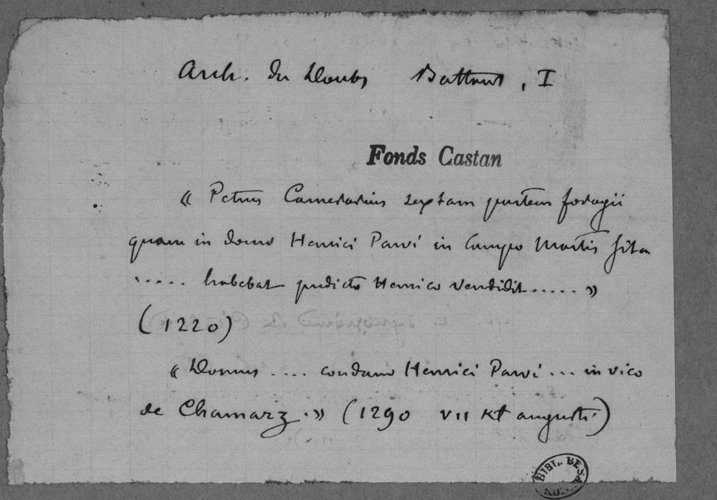 Arch. du Doubs Battant, I
Fonds Castan
« Petrus Camerarius sextam partem foragii
quam in domo Henrici Parvi in Campo Martis sita
..... habebat predicto Henrico vendidit ..... »
(1220)
« Domus .... condam Henrici Parvi ... in vico
de Chamarz. » (1290 VII kl augusti)
BIBL. BES